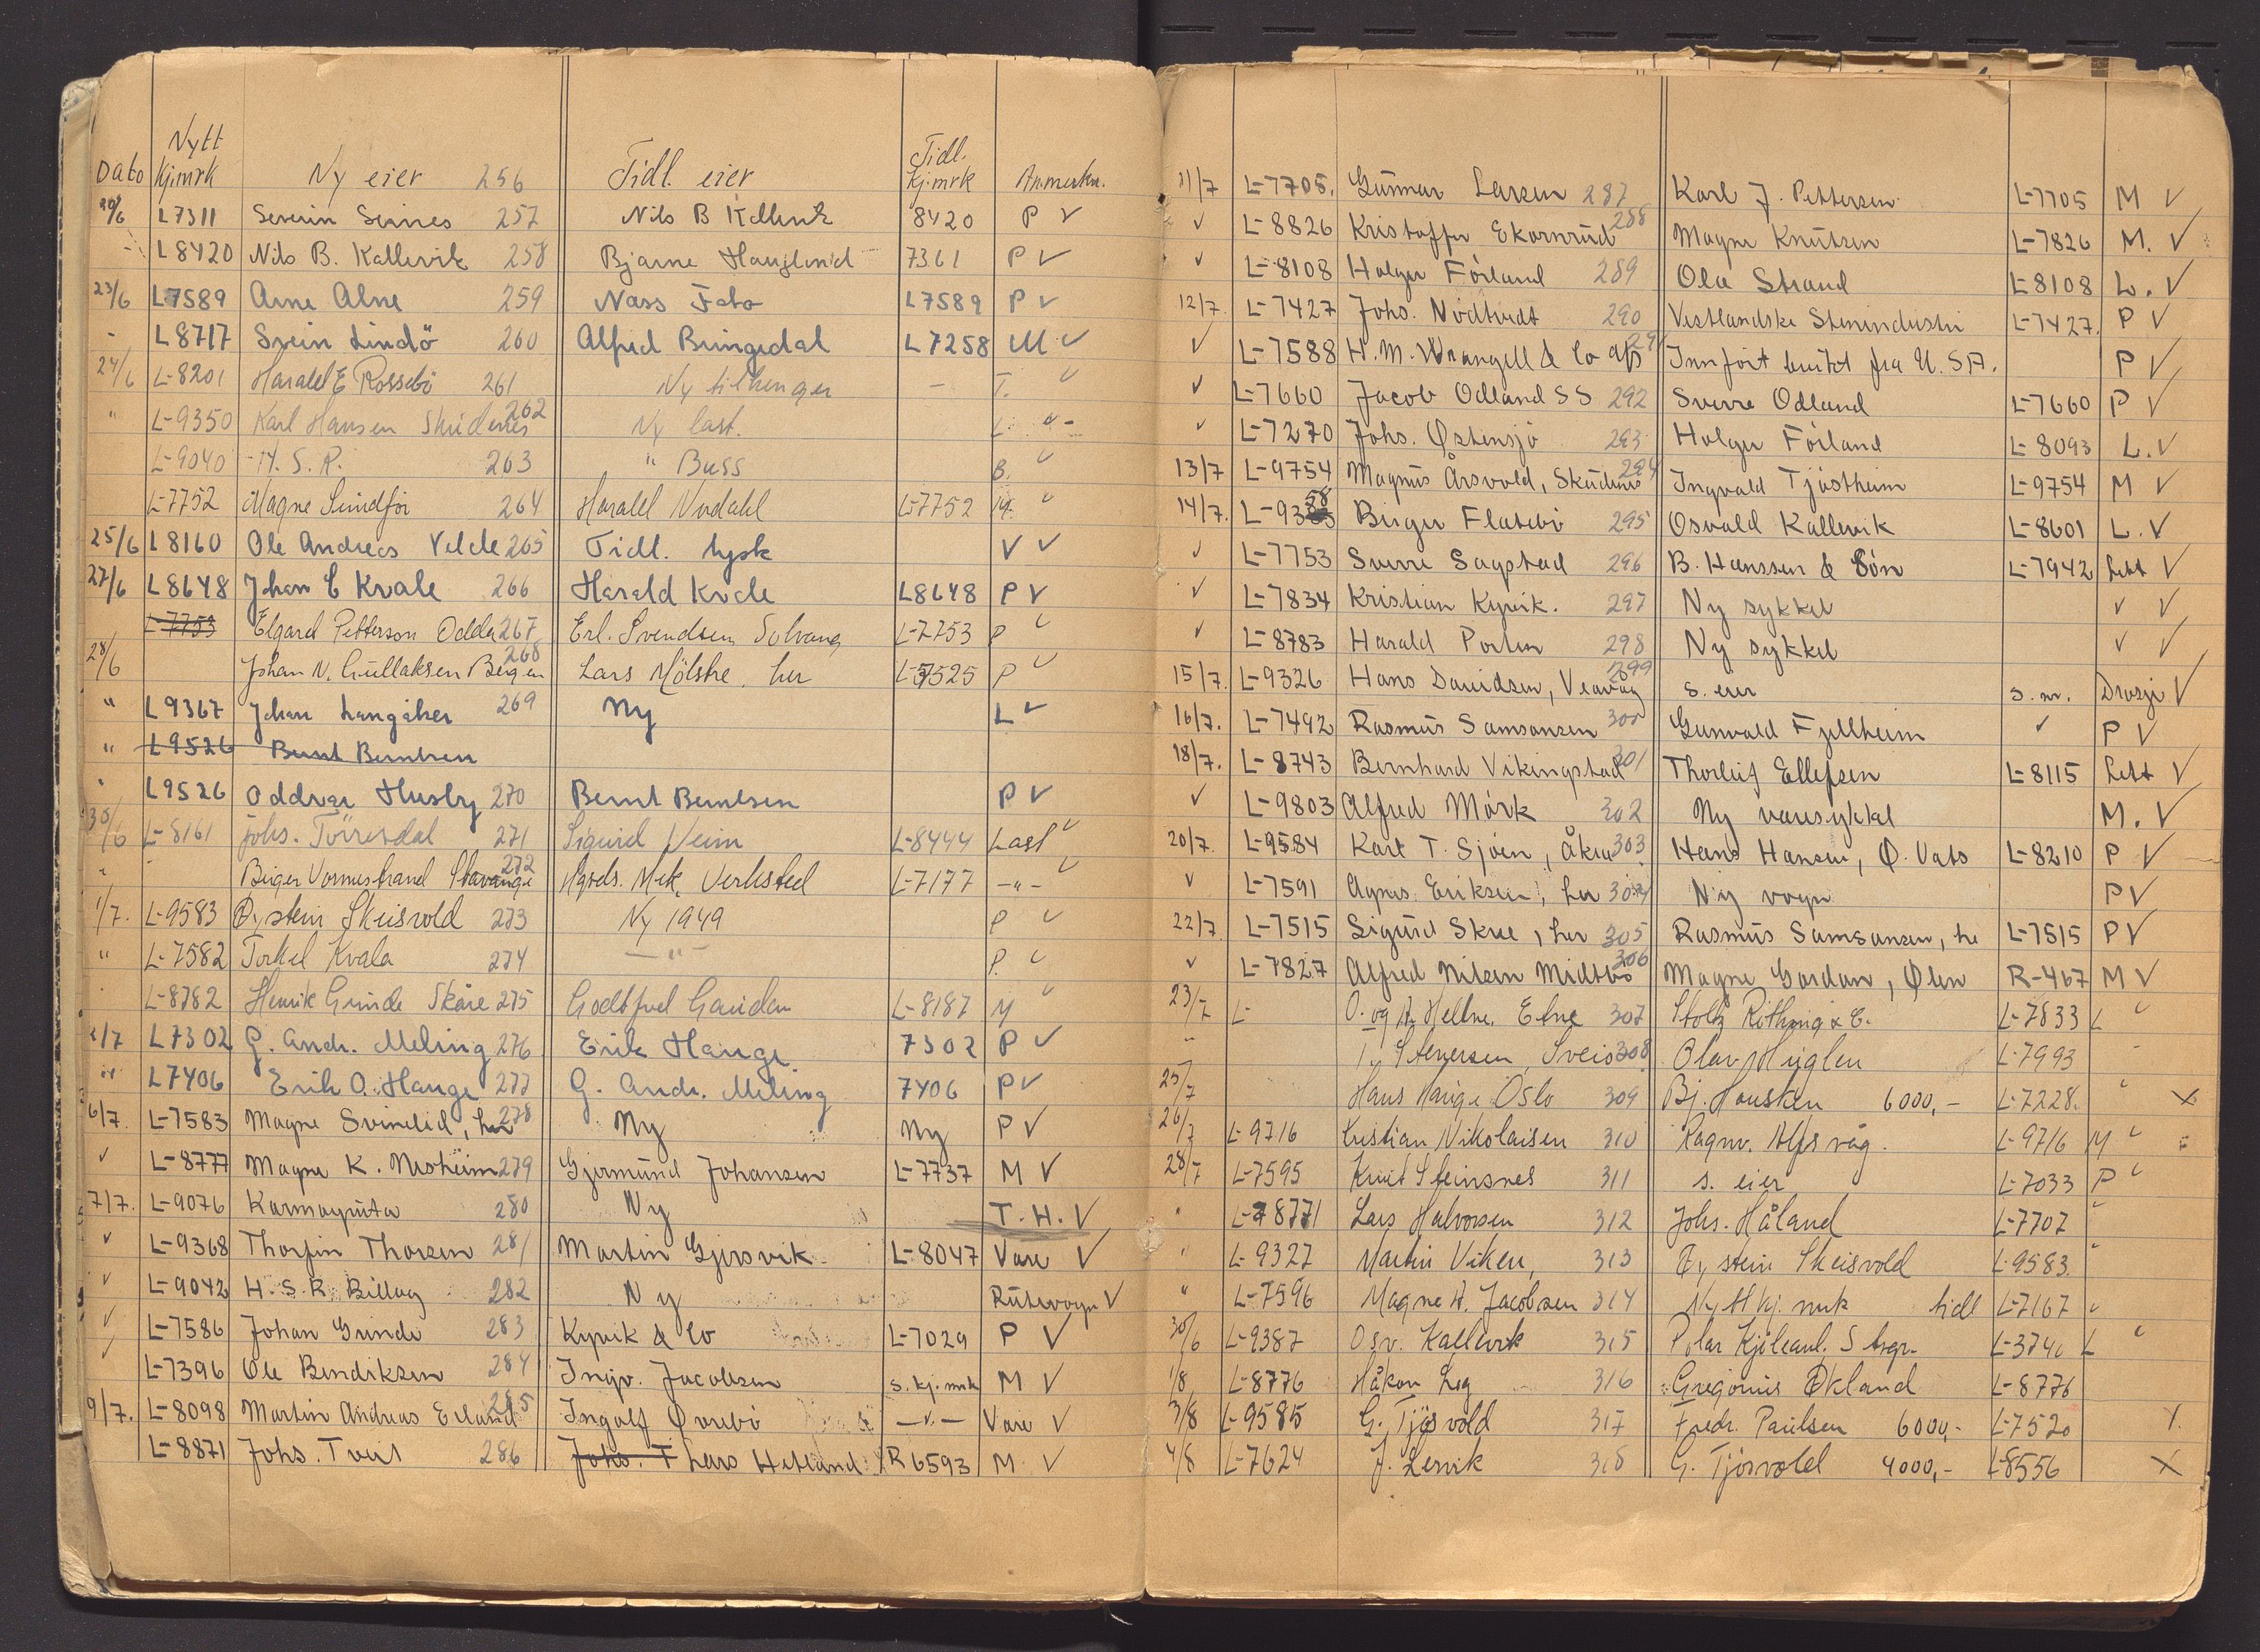 Dato Nytt Kj.mrk Ny eier 256 Tidl. eier Tidl. Kj.mrk Anmerkn.
20/6 L7311 Severin Seines 257 Nils B Kallevik 8420 P V
- L8420 Nils B. Kallevik 258 Bjarne Hauglund 7361 P V
23/6 L7589 Arne Alne 259 Nass Fabr 	L7589 P V
- L8717 Svein Lindö 260 Alfred Bringedal L7258 M V
24/6 L-8201 Harald E Rossebö 261 Ny tilhenger - T. V
" L-9350 Karl Hansen Skudenes 262 Ny last. L. "-
L-9040 H. S. R. 263 " Buss B. V
L-7752 Magne Sundför 264 Harald Nordahl L-7752 M. V
25/6 L8160 Ole Andreas Velde 265 Tidl. tysk V V
27/6 L8648 Johan E Kvale 266 Harald Kvale L8648 P V
L-7753 Elgard Petterson Odda 267 Erl. Svendsen Solvang L-7753 P V
28/6 Johan N. Gullaksen Bergen 268 Lars Mölstre. her L-7525 P V
" L9367 Johan Langåker 269 Ny L V
" L9526 Bernt Berntsen
" L9526 Oddvar Husby 270 Bernt Berntsen P V
30/6 L-8161 Johs. Törresdal 271 Sigurd Veim L-8444 Last V
" - Birger Vormestrand Stavanger 272 Hgsds. Mek. Verksted L-7177 -"- V
1/7. L-9583 Øystein Skeisvold 273 Ny 1949 P V
" L-7582 Torkel Kvala 274 -"- P. V
L-8782 Henrik Grinde Skåre 275 Godtfred Gaudan L-8187 M V
2/7 L7302 G. Andr. Meling 276 Erik Hauge 7302 P V
" L7406 Erik O. Hauge 277 G. Andr. Meling 7406 P V
6/7. L-7583 Magne Svinelid, her 278 Ny Ny P V
V L-8777 Magne K. Nesheim 279 Gjermund Johansen L-7737 M V
7/7. L-9076 Karmøyruta 280 Ny T. H. V
V L-9368 Thorfin Thorsen 281 Martin Gjersvik L-8047 Vare V
V L-9042 H. S. R. Billag 282 Ny Rutevogn V
V L-7586 Johan Grinde 283 Kyvik & Co L-7029 P V
V L-7396 Ole Bendiksen 284 Ingv. Jacobsen s. kj. mrk M V
9/7. L-8098 Martin Andreas Erland 285 Ingolf Øvrebö -"- Vare V
L-8871 Johs. Tveit 286 Johs. T Lars Hetland R 6593 M V
11/7 L-7705. Gunnar Larsen 287 Karl J. Pettersen L-7705 M V
V L-8826 Kristoffer Ekornrud 288 Magne Knutsen L-7826 M. V
V L-8108 Holger Förland 289 Ola Strand L-8108 L. V
12/7. L-7427 Johs. Nödtvedt 290 Vestlandske Stenindustri L-7427. P V
V L-7588 H. M. Wrangell & Co A/S 291 Innfört brukt fra U.S.A. P V
V L-7660 Jacob Odland SS 292 Sverre Odland L-7660 P V
V L-7270 Johs. Østensjö 293 Holger Förland L-8093 L. V
13/7 L-9754 Magnus Årsvold, Skudenes 294 Ingvald Tjöstheim L-9754 M V
14/7. L-9358 Birger Flatebö 295 Osvald Kallevik L-8601 L. V
V L-7753 Sverre Sagstad 296 B. Hanssen & Sön L-7942 Lett V
V L-7834 Kristian Kyvik. 297 Ny sykkel V V
V L-8783 Harald Porten 298 Ny sykkel V V
15/7. L-9326 Hans Davidsen, Veavåg 299 s. eier s. nr. Drosje V
16/7. L-7492 Rasmus Samsonsen 300 Gunvald Fjellheim V P V
18/7. L-8743 Bernhard Vikingstad 301 Thorleif Ellefsen L-8115 Lett V
V L-9803 Alfred Mörk 302 Ny varesykkel M. V
20/7. L-9584 Karl T. Sjöen, Åkra 303 Hans Hansen, Ø. Vats L-8210 P V
V L-7591 Agnes Eriksen, her 304 Ny vogn P V
22/7. L-7515 Sigurd Skre, her 305 Rasmus Samsonsen, he L-7515 P V
V L-7827 Alfred Nilsen Midtbö 306 Magne Gardan, Ølen R-467 M V
23/7 L- O. og A. Hellne, Etne 307 Stoltz Röthing & C. L-7833 L V
" Stenersen, Sveio 308 Olav Myglen L-7993 -
25/7 Hans Hauge Oslo 309 Bj. Housken 6000,- L-7228. " X
26/7 L-9716 Kristian Nikolaisen 310 Ragnv. Alfsvåg. L-9716 M V
28/7 L-7595 Knut Steinsnes 311 s. eier L-7033 P V
" L-8771 Lars Halvorsen 312 Johs. Håland L-7707 "
" L-9327 Martin Viken, 313 Øystein Skeisvold L-9583. "
" L-7596 Magne A. Jacobsen 314 Nytt kj. mrk tidl L-7167 "
30/6 L-9387 Osv. Kallevik 315 Polar Kjöleanl. Stvgr. L-3740 L V
1/8 L-8776 Håkon Leg 316 Gregorius Økland L-8776
3/8 L-9585 G. Tjösvold 317 Fredr. Paulsen 6000,- L-7520 X
4/8 L-7624 J. Lervik 318 G. Tjösvold 4000,- L-8556 X